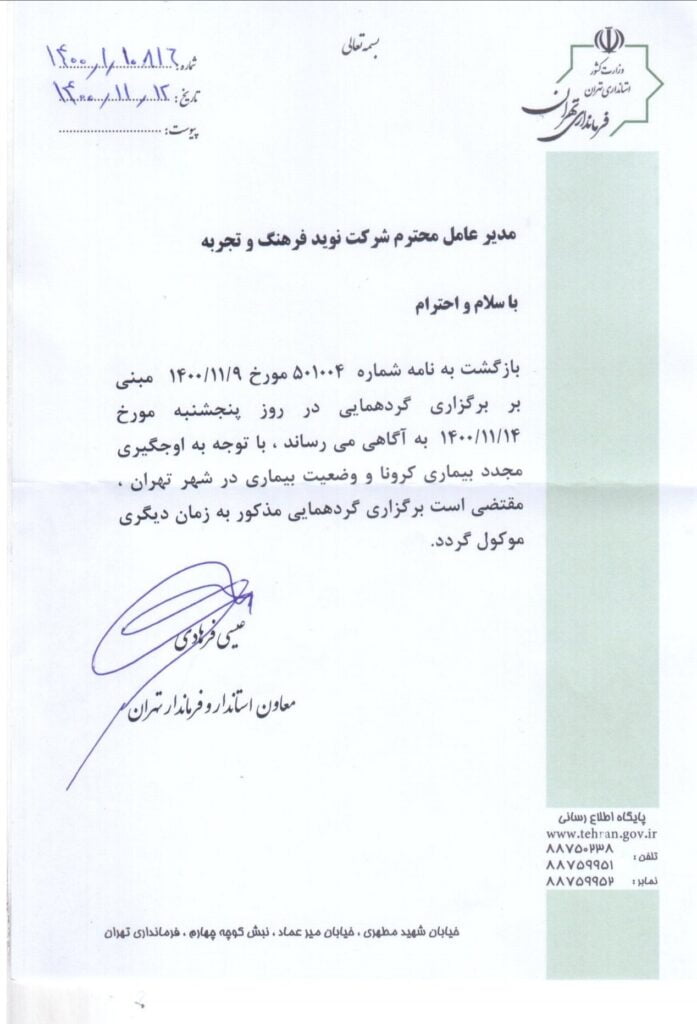 بسمه تعالی
وزارت کشور
استانداری تهران
فرمانداری تهران
شماره: ۱۴۰۰/۱/۱۰۸۱۶
تاریخ: ۱۴۰۰/۱۱/۱۲
پیوست:
مدیر عامل محترم شرکت نوید فرهنگ و تجربه
با سلام و احترام
بازگشت به نامه شماره ۵۰۱۰۰۴ مورخ ۱۴۰۰/۱۱/۹ مبنی
بر برگزاری گردهمایی در روز پنجشنبه مورخ
۱۴۰۰/۱۱/۱۴ به آگاهی می رساند ، با توجه به اوجگیری
مجدد بیماری کرونا و وضعیت بیماری در شهر تهران ،
مقتضی است برگزاری گردهمایی مذکور به زمان دیگری
موکول گردد.
عیسی فرهادی
معاون استاندار و فرماندار تهران
پایگاه اطلاع رسانی
www.tehran.gov.ir
تلفن: ۸۸۷۵۰۲۳۸
۸۸۷۵۹۹۵۱
نمابر: ۸۸۷۵۹۹۵۲
خیابان شهید مطهری ، خیابان میر عماد ، نبش کوچه چهارم ، فرمانداری تهران